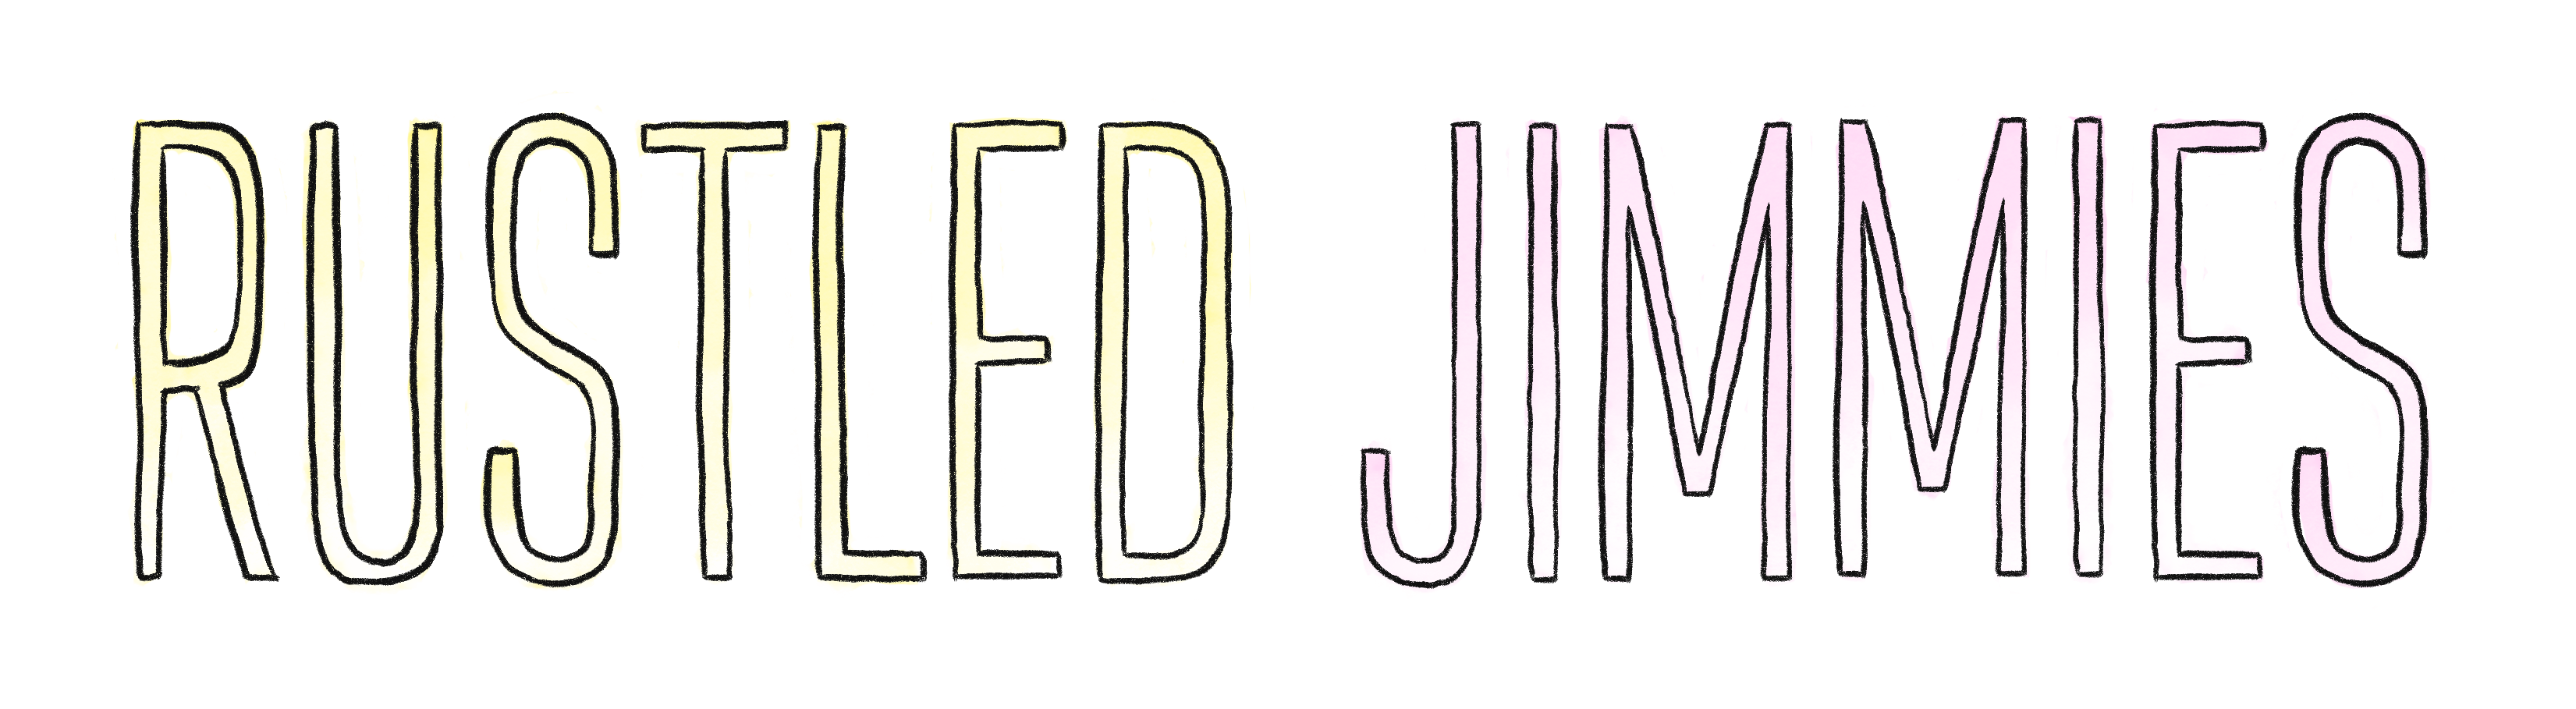 RUSTLED JIMMIES